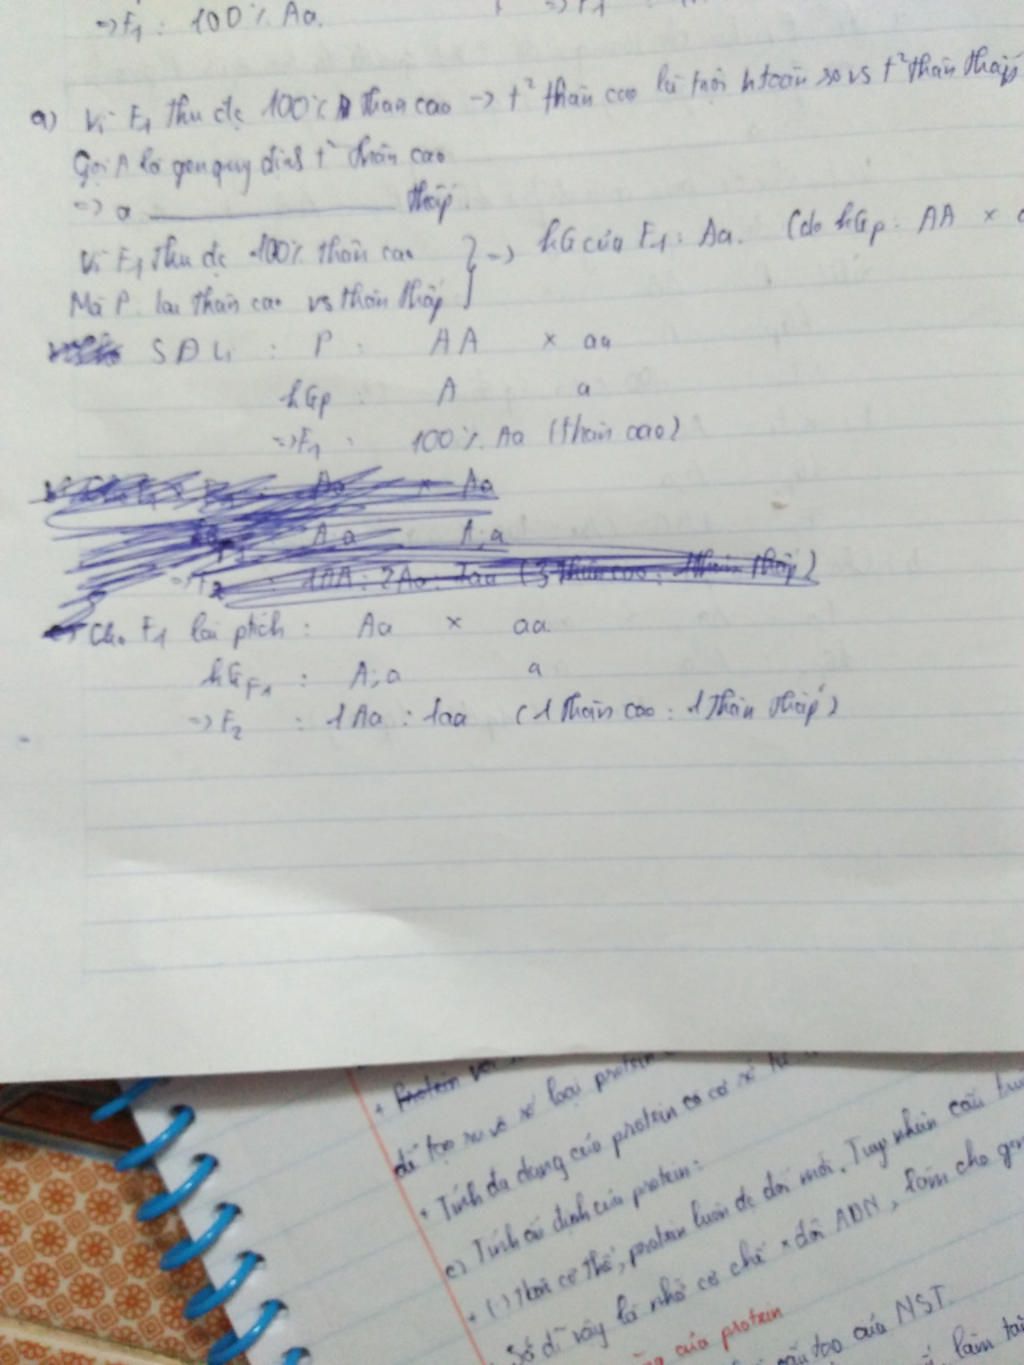 => F1 : 100% Aa.
=> F1 :
a) Vì F1 thu đc 100% thân cao -> t² thân cao là trội h toàn so vs t² thân thấp
Gọi A là gen quy định t² thân cao
=> a ________ thấp.
Vì F1 thu đc 100% thân cao } => kG của F1 : Aa. (do kGp : AA ×
Mà P. lai thân cao vs thân thấp
SĐL : P : AA × aa
kGp : A a
=> F1 : 100% Aa (thân cao)
Aa × Aa
A,a A,a
=> F2 : 1AA : 2Aa : 1aa (3 thân cao : 1 thân thấp)
Cho F1 lai ptích : Aa × aa
kGF1 : A;a a
=> F2 : 1Aa : 1aa (1 thân cao : 1 thân thấp)
+ Protein
để tạo ra vô số loại protein
+ Tính đa dạng của protein có cơ sở từ
c) Tính ổn định của protein :
+ (-) thời cơ thể, protein luôn đc đổi mới. Tuy nhiên cấu trúc
Sở dĩ vậy là nhờ cơ chế × đôi ADN, làm cho gen
của protein
cấu tạo của NST.